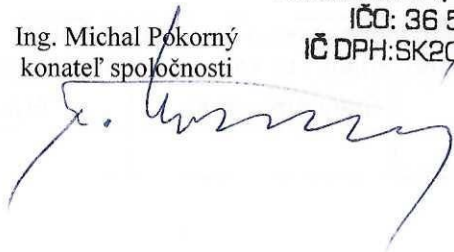 Ing. Michal Pokorný
konateľ spoločnosti
IČO: 36 5
IČ DPH:SK20